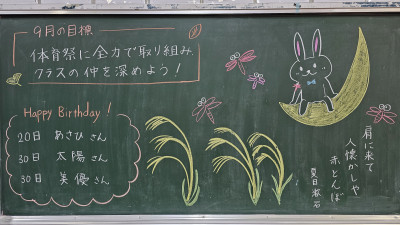 9月の目標
体育祭に全力で取り組み、
クラスの仲を深めよう！
Happy Birthday！
20日 あさひ さん
30日 太陽 さん
30日 美優 さん
肩に来て
人懐かしや
赤とんぼ
夏目漱石